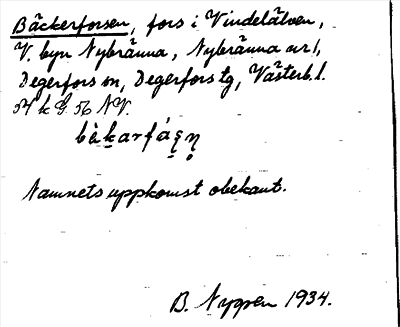 Bäckerforsen, fors i Vindelälven,
V. byn Nybränna, Nybränna nr 1,
Degerfors sn, Degerfors tg, Västerb. l.
54 k G. 56 NV.
Namnets uppkomst obekant.
B. Nygren 1934.